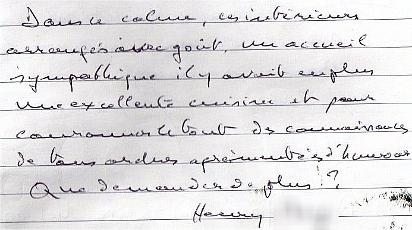 Dans le calme, ces intérieurs
arrangés avec goût, un accueil
sympathique il y avait en plus
une excellente cuisine et pour
couronner le tout des connaissances
de tous ordres agrémentées d'humour
Que demander de plus !?
Henry